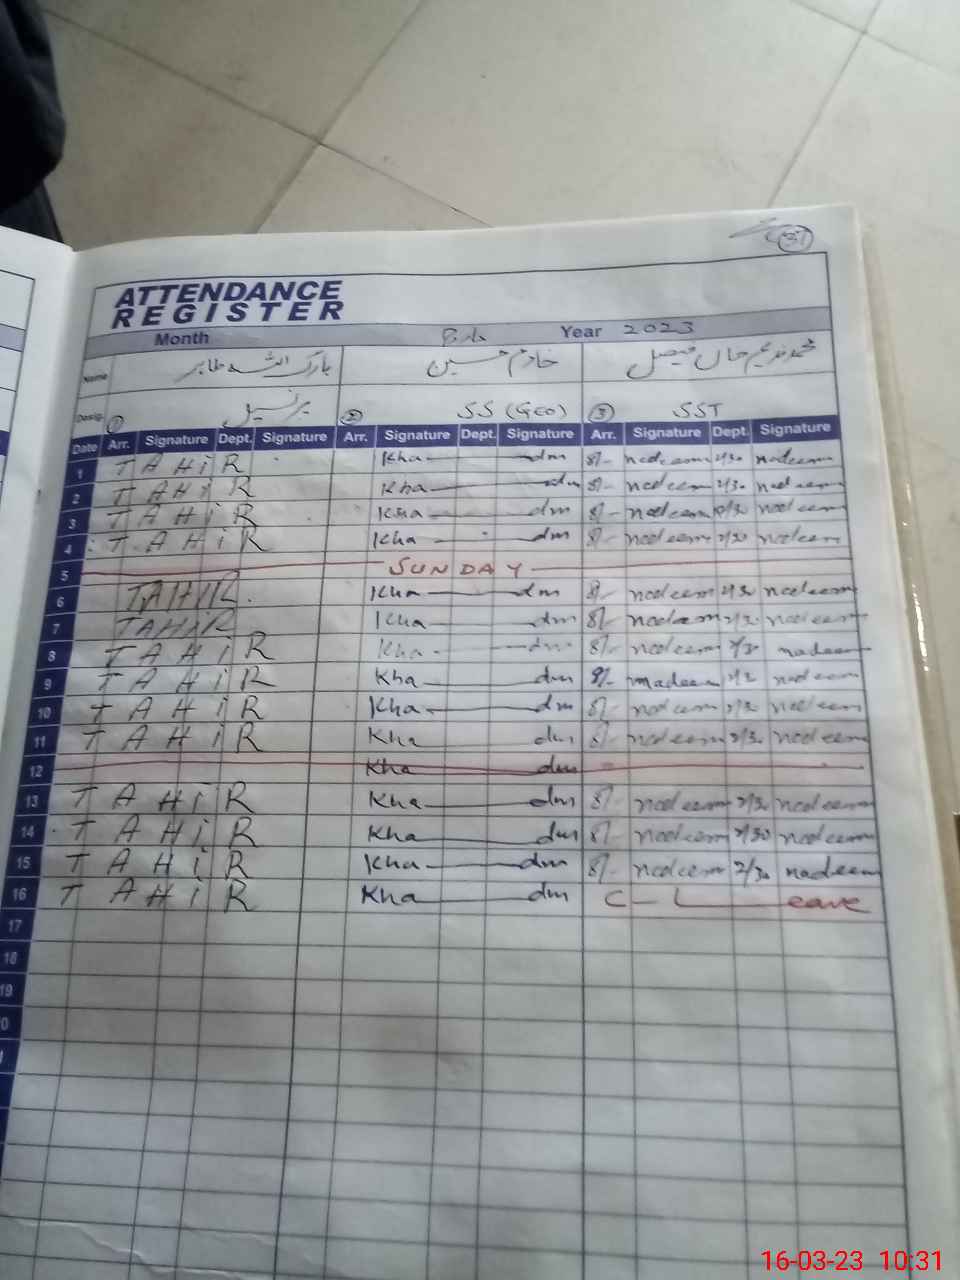 37
ATTENDANCE
REGISTER
Month مارچ Year 2023
Name خادم حسین
Desig. 1 پرنسپل 2 SS (GEO) 3 SST
Date Arr. Signature Dept. Signature Arr. Signature Dept. Signature Arr. Signature Dept. Signature
1 TAHiR Kha dm 8/- nadeem 2/30 nadeem
2 TAHiR Kha dm 8/- nadeem 2/30 nadeem
3 TAHiR Kha dm 8/- nadeem 12/30 nadeem
4 TAHiR Kha dm 8/- nadeem 2/30 nadeem
5 SUNDAY
6 TAHIR Kha dm 8/- nadeem 2/30 nadeem
7 TAHIR Kha dm 8/- nadeem 2/30 nadeem
8 TAHiR Kha dm 8/- nadeem 2/30 nadeem
9 TAHiR Kha dm 8/- nadeem 2/30 nadeem
10 TAHiR Kha dm 8/- nadeem 2/30 nadeem
11 TAHiR Kha dm 8/- nadeem 2/30 nadeem
12 Kha dm
13 TAHiR Kha dm 8/- nadeem 2/30 nadeem
14 TAHiR Kha dm 8/- nadeem 2/30 nadeem
15 TAHiR Kha dm 8/- nadeem 2/30 nadeem
16 TAHiR Kha dm C-Leave
17
18
19
16-03-23 10:31